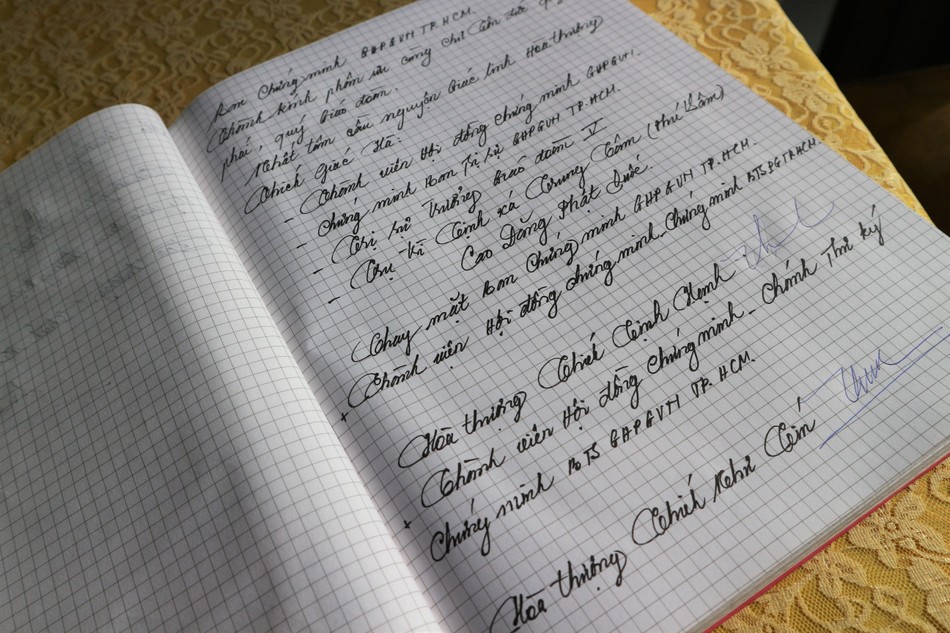 Ban Chứng minh GHPGVN TP.HCM.
Thành kính phân ưu cùng chư Tôn đức
phái, quý Giáo đoàn.
Nhất tâm cầu nguyện Giác linh Hòa thượng
Thích Giác Hà:
- Thành viên Hội đồng Chứng minh GHPGVN.
- Chứng minh Ban Trị sự GHPGVN TP.HCM.
- Tri sự Trưởng Giáo đoàn V
- Trụ trì Tịnh xá Trung Tâm (Phú Lâm)
Cao Đăng Phật Quốc.
Thay mặt Ban Chứng minh GHPGVN TP.HCM.
+ Thành viên Hội đồng chứng minh - Chứng minh BTSPGTP.HCM.
Hòa thượng Thích Tịnh Hạnh
+ Thành viên Hội đồng Chứng minh - Chánh Thư ký
Chứng minh BTS GHPGVN TP. HCM.
Hòa thượng Thích Như Tín